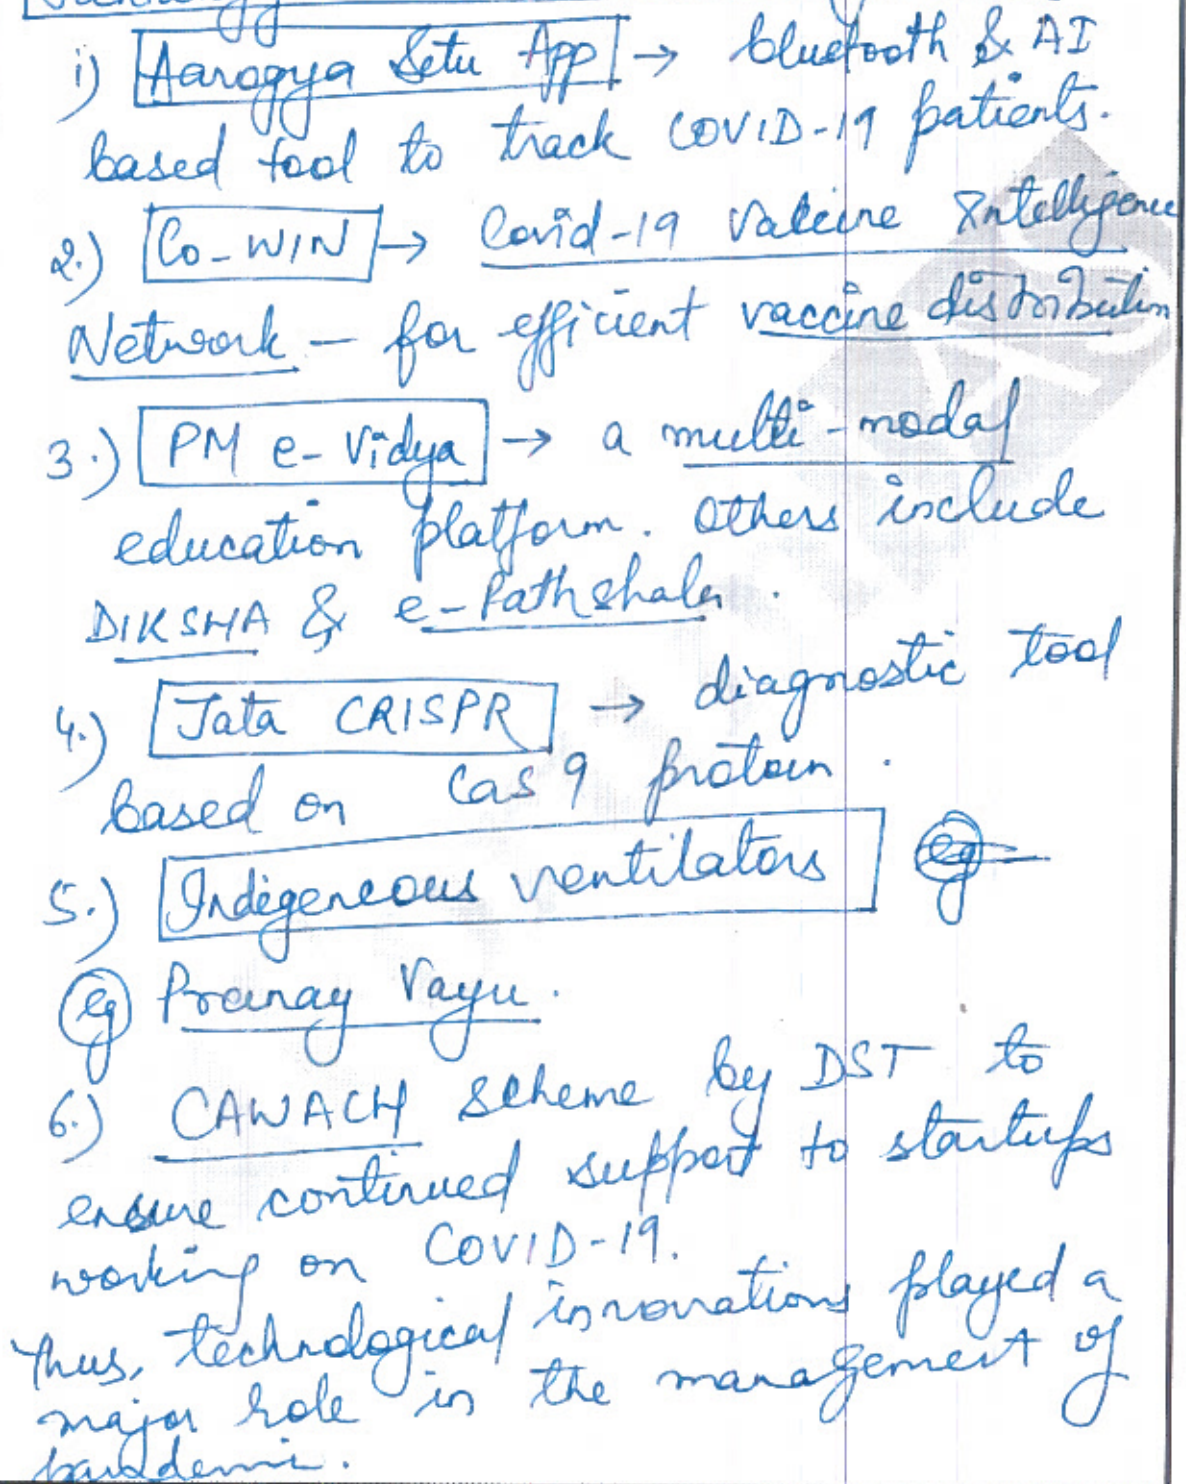 i) Aarogya Setu App → bluetooth & AI
based tool to track COVID-19 patients.
2.) Co-WIN → Covid-19 Vaccine Intelligence
Network - for efficient vaccine distribution
3.) PM e-Vidya → a multi-modal
education platform. Others include
DIKSHA & e-Pathshala.
4.) Tata CRISPR → diagnostic tool
based on Cas 9 protein.
5.) Indigeneous ventilators eg
eg Pranay Vayu.
6.) CAWACH scheme by DST to
ensure continued support to startups
working on COVID-19.
Thus, technological innovations played a
major role in the management of
pandemic.